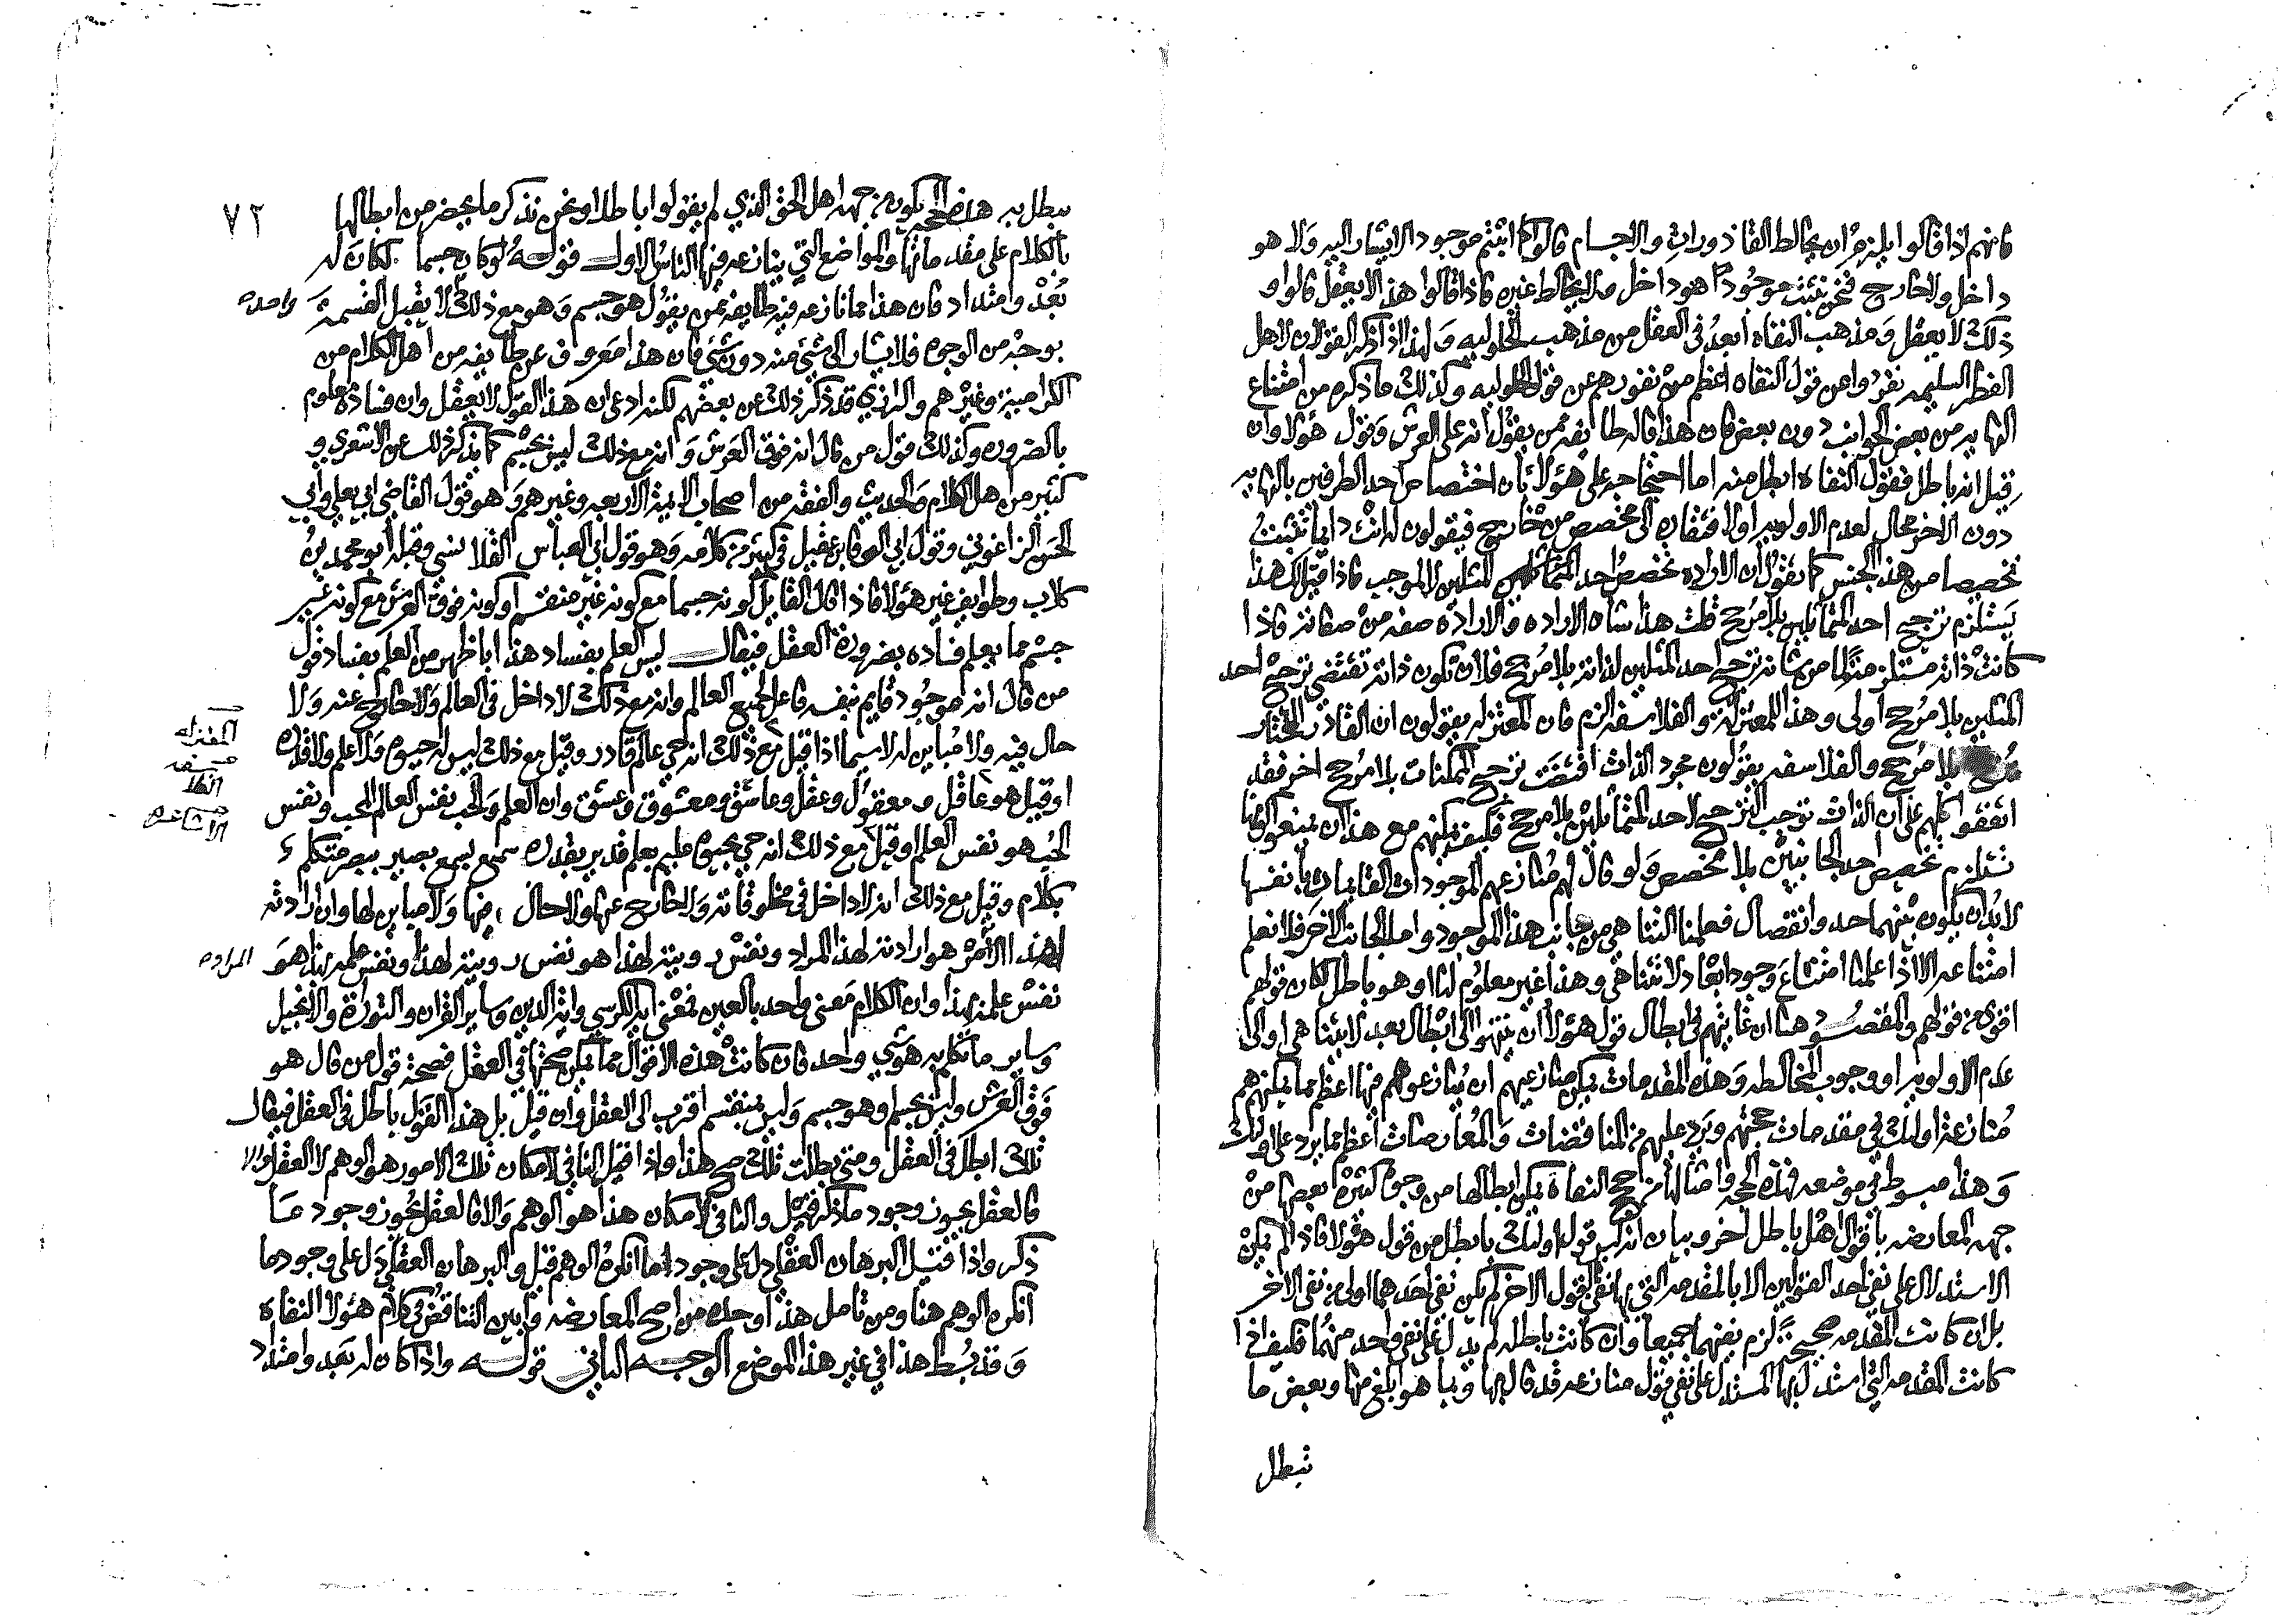 فانهم اذا قالوا يلزم ان يخالط القاذورات والاجسام قالوا كما اثبتم موجودا لا يشار اليه ولا هو
داخل ولا خارج فنحن نثبت موجودا هو داخل ولا يخالط غيره فاذا قالوا هذا لا يعقل قالوا و
ذلك لا يعقل ومذهب النفاه ابعد في العقل من مذهب الحلوليه ولهذا اذا ذكر القولان لاهل
الفطر السليمه نفروا من قول النفاه اعظم من نفورهم عن قول الحلوليه وكذلك ما ذكره من امتناع
النهايه من بعض الجوانب دون بعض فان هذا قاله طايفه ممن يقول انه على العرش وقول هؤلا وان
قيل انه باطل فقول النفاه ابطل منه اما احتجاجه على هؤلا بان اختصاص احد الطرفين بالنهايه
دون الاخر محال لعدم الاولويه او لافتقاره الى مخصص من خارج فيقولون له انت دايما تثبت
تخصيصا من هذا الجنس كما تقول ان الاراده تخصص احد المتماثلين المثلين لا لموجب فاذا قيل لك هذا
يستلزم ترجيح احد المتماثلين بلا مرجح قلت هذا شان الاراده والاراده صفه من صفاته فاذا
كانت ذاته مستلزمة لما من شانه ترجيح احد المثلين لذاته بلا مرجح فلان تكون ذاته تقتضي ترجيح احد
المثلين بلا مرجح اولى وهذا للمعتزلة والفلاسفه الزم فان المعتزله يقولون ان القادر المختار
يرجح بلا مرجح والفلاسفه يقولون مجرد الذات اقتضت ترجيح الممكنات بلا مرجح اخر فقد
اتفقوا كلهم على ان الذات توجب الترجيح لاحد المتماثلين بلا مرجح فكيف يمكنهم مع هذا ان يمنعوا كونها
تستلزم تخصيص احد الجانبين بلا مخصص ولو قال لهم منازعهم الموجودات القايمات بانفسها
لا بد ان يكون بينهما حد وانفصال فعلمنا التناهي من جانب هذا الموجود واما الجانب الاخر فلا نعلم
امتناعه الا اذا علمنا امتناع وجود ابعاد لا تتناهى وهذا غير معلوم لنا او هو باطل لكان قولهم
اقوى من قولهم والمقصود هنا ان غايتهم في ابطال قول هؤلا ان ينتهوا الى ابطال بعد لا يتناهى او الى
عدم الاولويه او وجوب المخالطه وهذه المقدمات يمكن منازعيهم ان ينازعوهم فيها اعظم مما يمكنهم هم
منازعة اوليك في مقدمات حجتهم ويرد عليهم من المناقضات والمعارضات اعظم مما يرد على اوليك
وهذا مبسوط في موضعه فهذه الحجه وامثالها من حجج النفاة يمكن ابطالها من وجوه كثيرة بعضها من
جهه المعارضه باقوال اهل باطل اخر وبيان انه ليس قول اوليك بابطل من قول هؤلا فاذا لم يمكن
الاستدلال على نفي احد القولين الا بالمقدمه التي بها نفي القول الاخر لم يكن نفي احدهما اولى من نفي الاخر
بل ان كانت المقدمه صحيحة لزم نفيهما جميعا وان كانت باطله لم يدل على نفي واحد منهما فكيف اذا
كانت المقدمه التي استدل بها المستدل على نفي قول منازعه قد قال بها وبما هو ابلغ منها وبعض ما
تبطل
٧٢
يبطل به هذه الحجه يكون من جهه اهل الحق الذي لم يقولوا باطلا ونحن نذكر ما يحضر من ابطالها
بالكلام على مقدماتها والمواضع التي ينازعه فيها الناس الاول قوله لو كان جسما لكان له
بعد وامتداد فان هذا مما نازعه فيه طايفه ممن يقول هو جسم وهو مع ذلك لا يقبل القسمة
واحده
بوجه من الوجوه فلا يشار الى شئ منه دون شئ فان هذا معروف عن طايفه من اهل الكلام من
الكراميه وغيرهم والرازي قد ذكر ذلك عن بعضهم لكنه ادعى ان هذا القول لا يعقل وان فساده معلوم
بالضروره وكذلك قول من قال انه فوق العرش وانه مع ذلك ليس بجسم كما يذكر ذلك عن الاشعري و
كثير من اهل الكلام والحديث والفقه من اصحاب الايمة الاربعه وغيرهم وهو قول القاضي ابي يعلى وابي
الحسن الزاغوني وقول ابي الوفا بن عقيل في كثير من كلامه وهو قول ابي العباس القلانسي وقبله ابو محمد بن
كلاب وطوايف غير هؤلا فاذا قال القايل كونه جسما مع كونه غير منقسم او كونه فوق العرش مع كونه غير
جسم مما يعلم فساده بضرورة العقل فيقال ليس العلم بفساد هذا باظهر من العلم بفساد قول
من قال انه موجود قايم بنفسه فاعل لجميع العالم وانه مع ذلك لا داخل في العالم ولا خارج عنه ولا
حال فيه ولا مباين له لا سيما اذا قيل مع ذلك انه حي عالم قادر وقيل مع ذلك ليس له حيوه ولا علم ولا قدره
المعتزله
او قيل هو عاقل ومعقول وعقل وعاشق ومعشوق وعشق وان العلم والحب نفس العالم المحب ونفس
الحب هو نفس العلم او قيل مع ذلك انه حي بحيوه عليم بعلم قدير بقدره سميع بسمع بصير ببصر متكلم
بكلام وقيل مع ذلك انه لا داخل في مخلوقاته ولا خارج عنها ولا حال فيها ولا مباين لها وان ارادته
لهذا الامر هو ارادته لهذا المراد ونفس رويته لهذا هو نفس رويته لهذا ونفس علمه بهذا هو
المراده
نفس علمه بهذا وان الكلام معنى واحد بالعين فمعنى اية الكرسي واية الدين وساير القران والتوراة والانجيل
وساير ما تكلم به هو شي واحد فان كانت هذه الاقوال مما يمكن صحتها في العقل فصحة قول من قال هو
فوق العرش وليس بجسم او هو جسم وليس بمنقسم اقرب الى العقل وان قيل بل هذا القول باطل في العقل فيقال
تلك ابطل في العقل ومتى بطلت تلك صح هذا واذا قيل النافي لامكان تلك الامور هو الوهم لا العقل والا
فالعقل يجوز وجود ما ذكر قيل والنافي لامكان هذا هو الوهم والا فالعقل يجوز وجود ما
ذكر واذا قيل البرهان العقلي دل على وجود ما انكره الوهم قيل والبرهان العقلي دل على وجود ما
انكره الوهم هنا ومن تامل هذا وجده من اصح المعارضه وابين التناقض في كلام هؤلا النفاه
وقد بسط هذا في غير هذا الموضع الوجه الثاني قوله واذا كان له بعد وامتداد